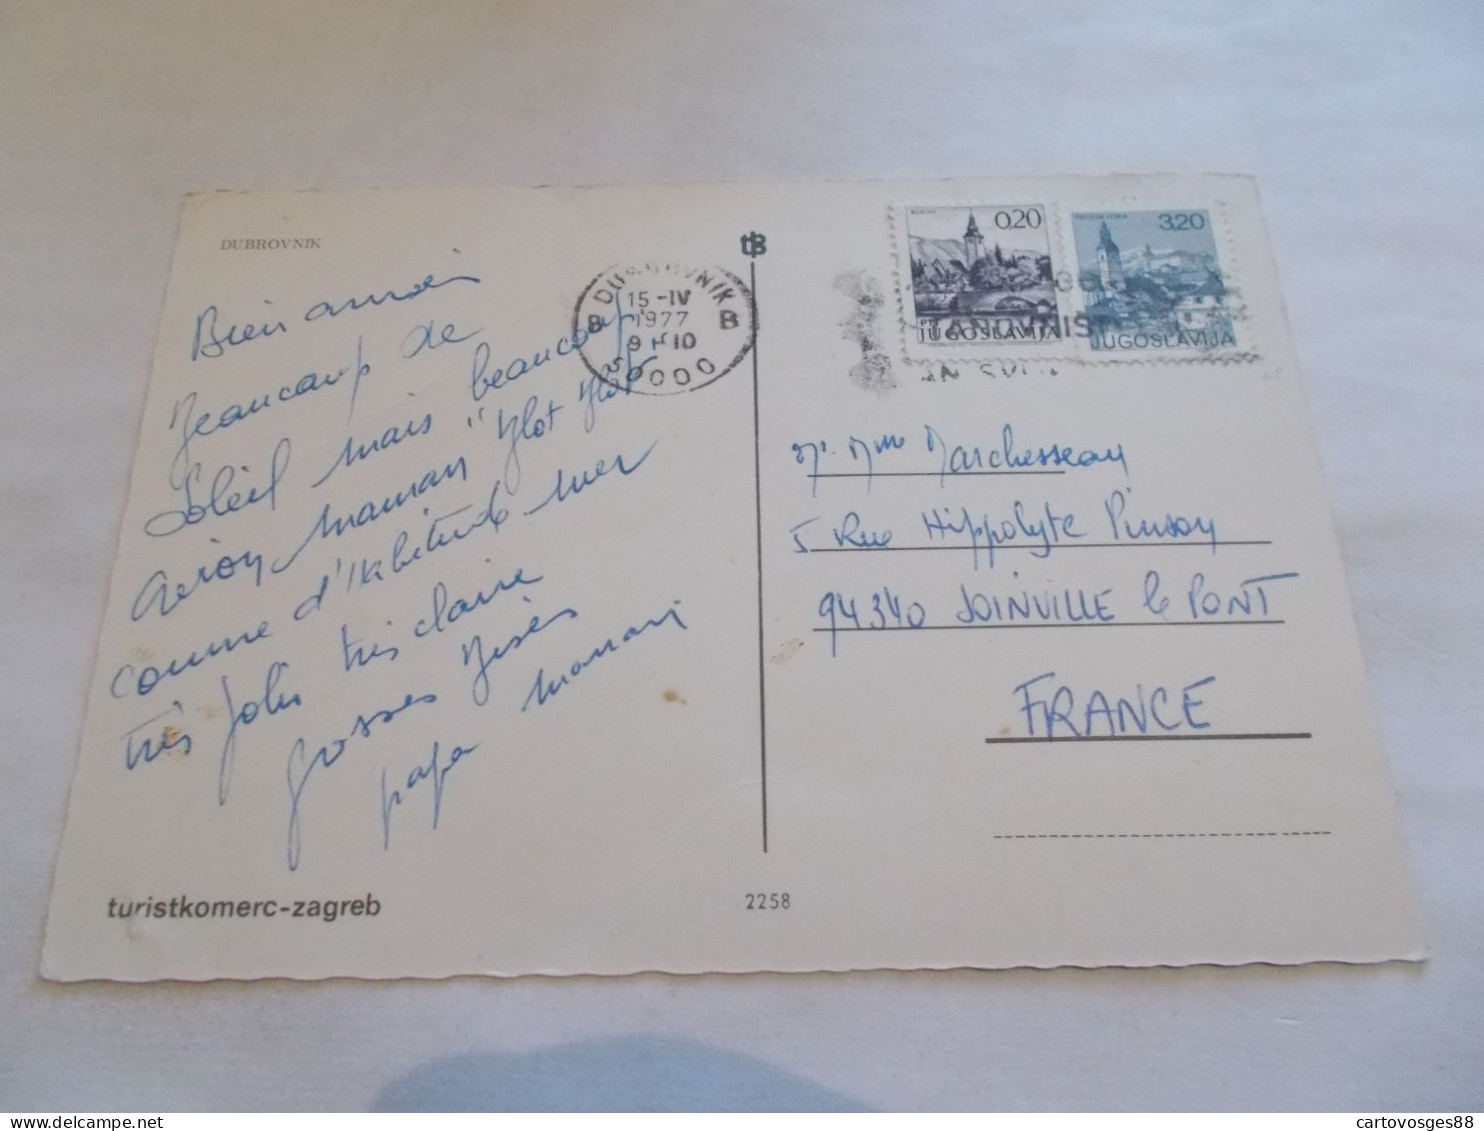 DUBROVNIK
Bien arrivés
Beaucoup de
Soleil mais beaucoup
avion maman "flot flot
comme d'habitude mer
très jolie très claire
grosses bises
papa maman
turistkomerc-zagreb
tB
2258
DUBROVNIK
15-IV
1977
B B
9 H 10
50000
0,20
JUGOSLAVIJA
3,20
JUGOSLAVIJA
Mr. Mme Marchesseau
5 Rue Hippolyte Pinson
94340 JOINVILLE le PONT
FRANCE
cartovosges88